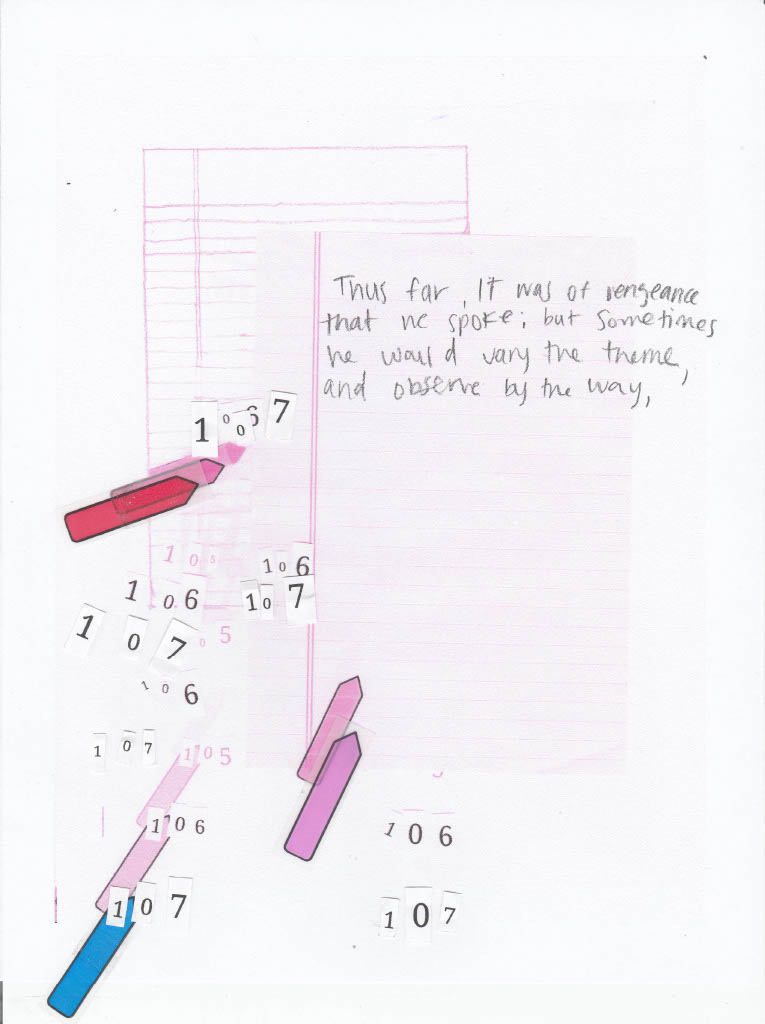 Thus far, It was of vengeance
that he spoke; but Sometimes
he would vary the theme,
and observe by the way,
1 0 6 7
0
1 0 5
1 0 6
1 0 6
1 0 7
1 0 7
0 5
1 0 6
1 0 7
1 0 5
1 0 6
1 0 6
1 0 7
1 0 7